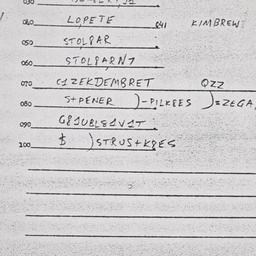 030
040 LOPETE 041 KIMBREW
050 STOLPAR
060 STOLPARN7
070 C1ZEKDEMBRET OZZ
080 S+PENER )-PILKEES )=ZEGA
090 G81UBLE1V1T
100 $ )STRUS+KPES